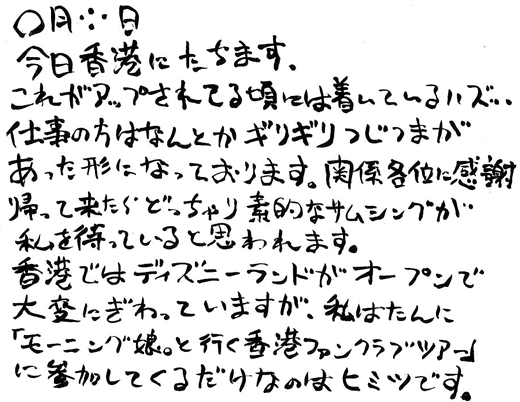 ○月∴日
今日香港にたちます。
これがアップされてる頃には着いているハズ…
仕事の方はなんとかギリギリつじつまが
あった形になっております。関係各位に感謝
帰って来たらどっちゃり素的なサムシングが
私を待っていると思われます。
香港ではディズニーランドがオープンで
大変にぎわっていますが、私はたんに
「モーニング娘。と行く香港ファンクラブツアー」
に参加してくるだけなのはヒミツです。